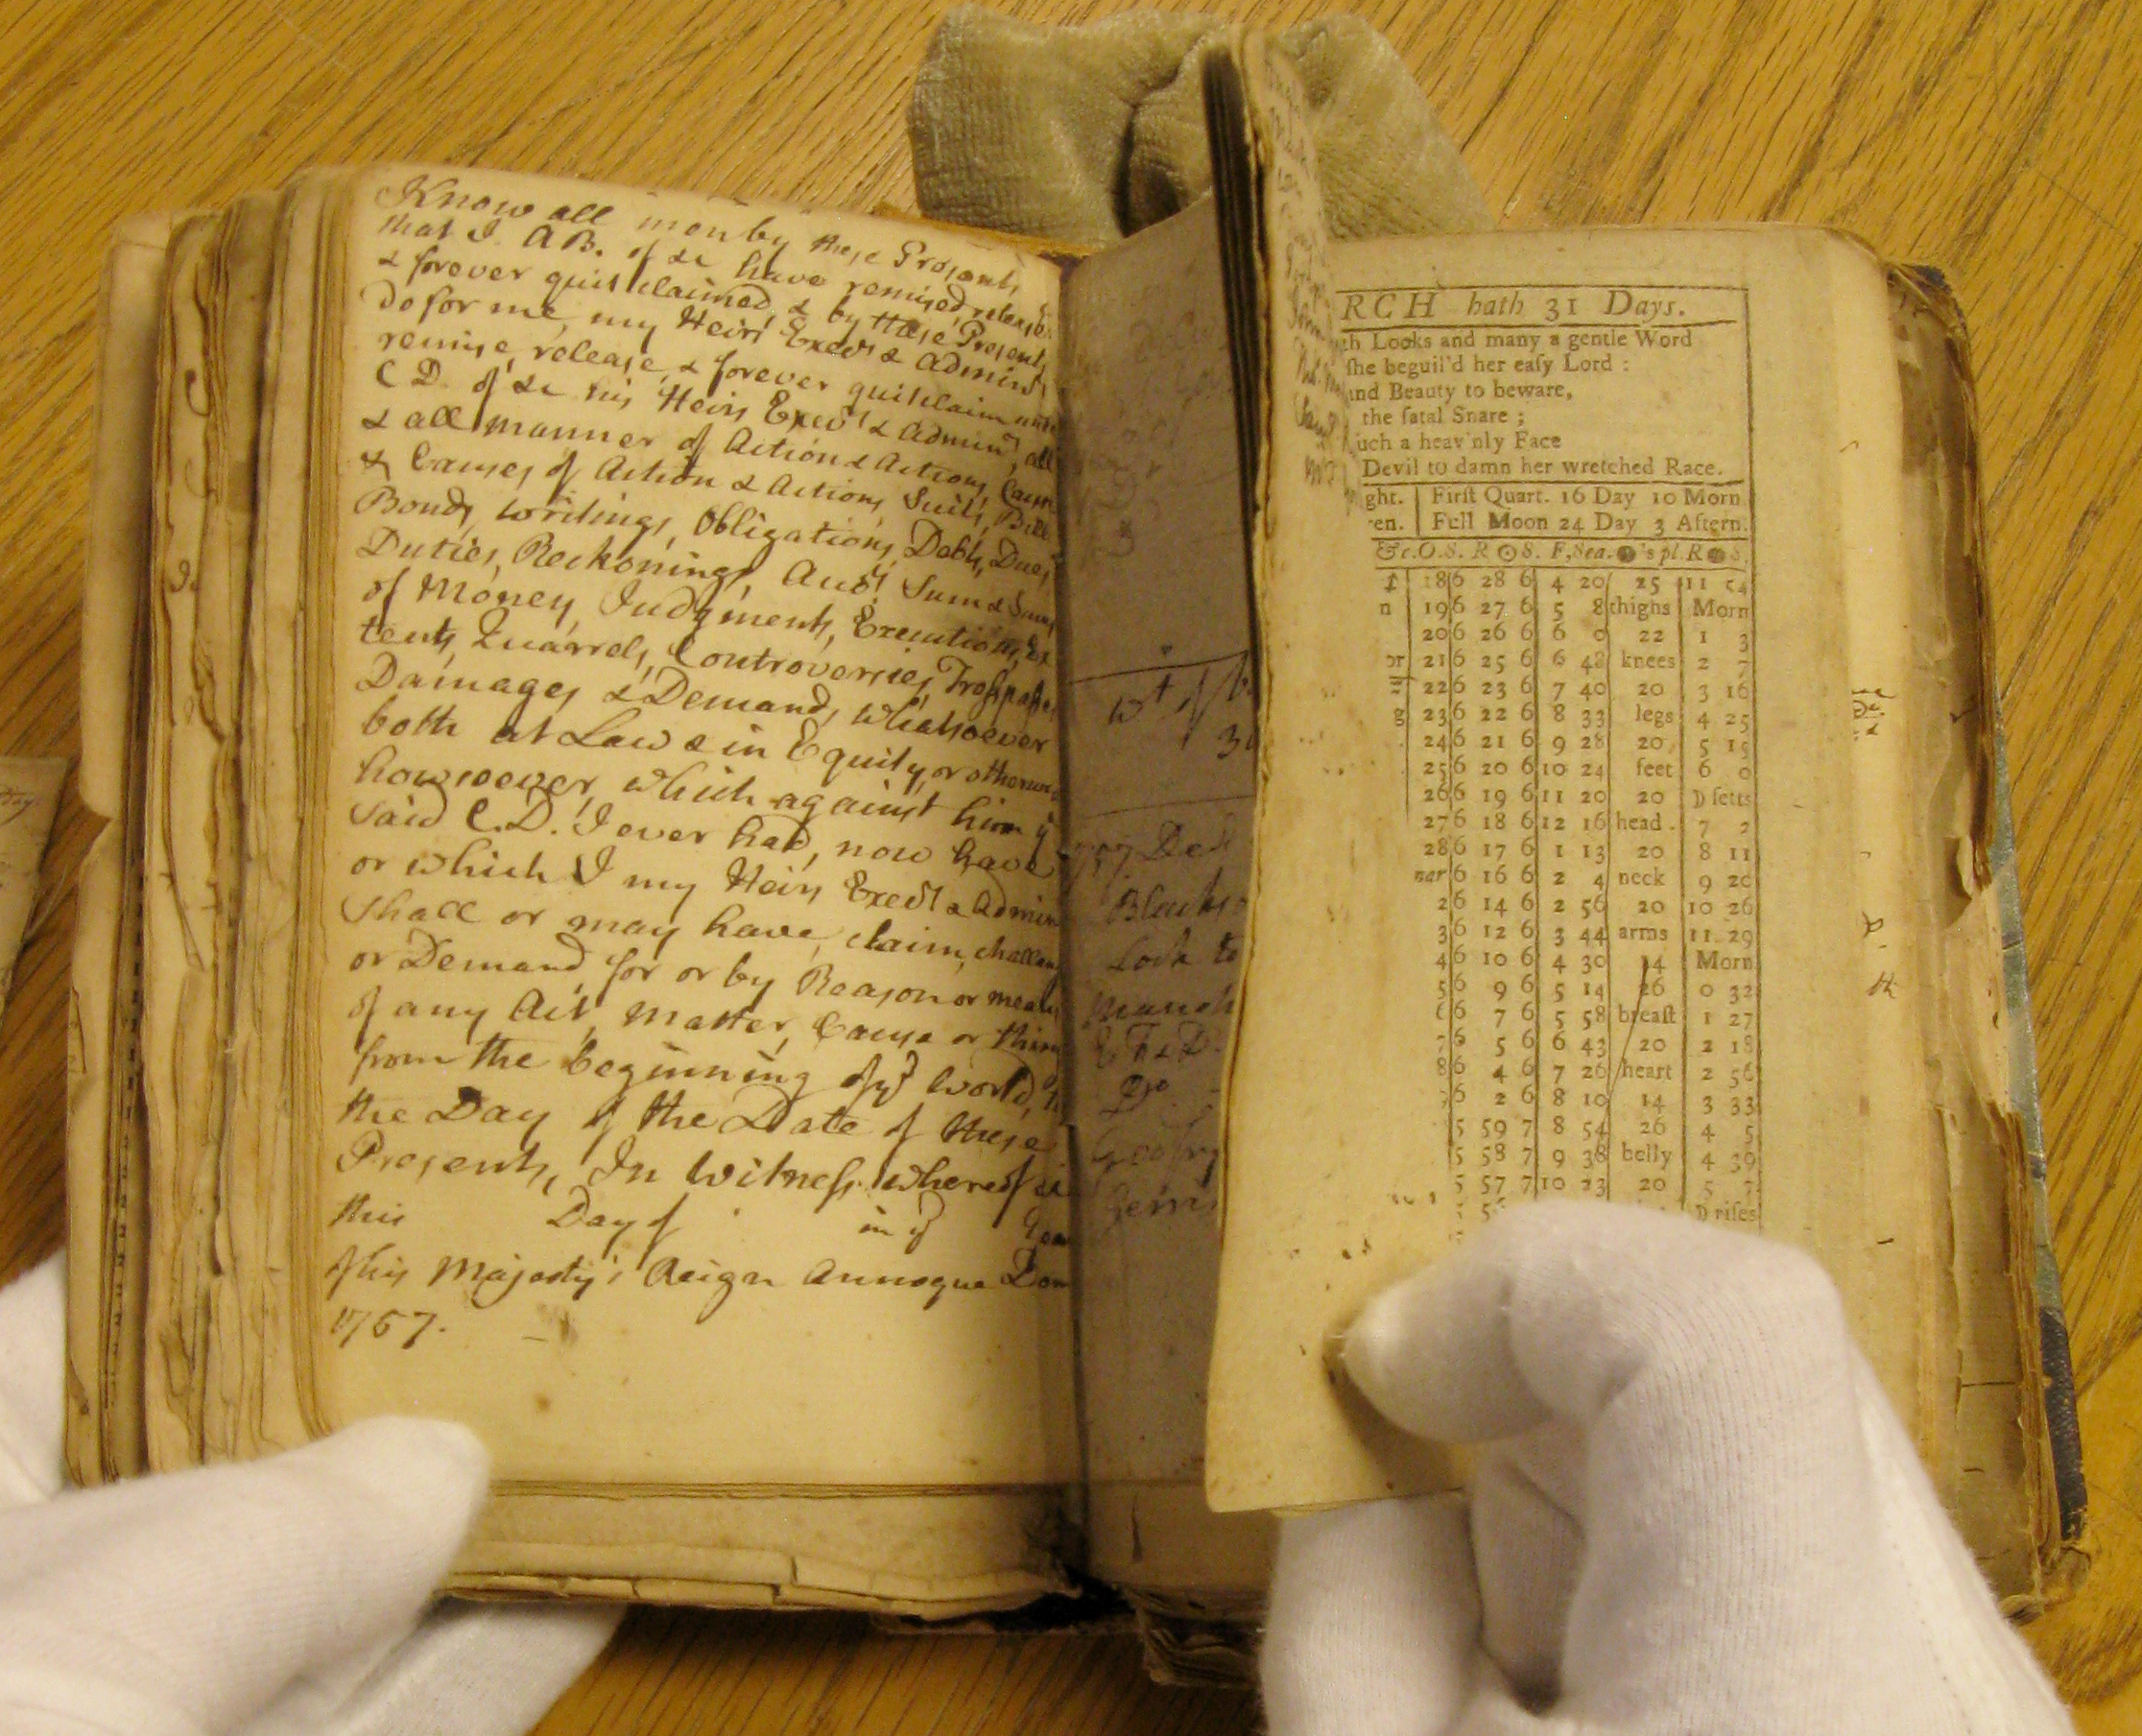 Know all men by these Presents
that I A B. of &c have remised, releas'd
& forever quit claimed, & by these Presents
do for me, my Heirs Exec.rs & Admin.rs
remise, release, & forever quitclaim unto
C D. of &c his Heirs Exec.rs & Admin.rs, all
& all manner of Action & Actions, Cause
& Causes of Action & Actions Suits, Bills
Bonds, writings, Obligations, Debts, Dues,
Duties, Reckonings, Acc.ts Sum & Sums
of Money, Judgments, Executions, Ex
tents, Quarrels, Controversies, Trespasses
Damages & Demands, whatsoever
both at Law & in Equity, or otherwise
howsoever, which against him y.e
said C.D. I ever had, now have
or which I my Heirs Exec.rs & Admin
shall or may have, claim, challen
or Demand, for or by Reason or means
of any Act, matter, Cause or thing
from the beginning of y.e World, to
the Day of the Date of these
Presents, In Witness whereof &c
this Day of in y.e Year
of his Majesty's Reign Annoque Dom
1757.
w.t of
757 Dec
Look to
Do
RCH hath 31 Days.
th Looks and many a gentle Word
she beguil'd her easy Lord :
and Beauty to beware,
the fatal Snare ;
uch a heav'nly Face
Devil to damn her wretched Race.
ght. First Quart. 16 Day 10 Morn.
en. Full Moon 24 Day 3 Aftern.
&c. O.S. R ☉ S. F, Sea. ●'s pl. R ● S.
18 6 28 6 4 20 25 11 54
n 19 6 27 6 5 8 thighs Morn
20 6 26 6 6 0 22 1 3
or 21 6 25 6 6 48 knees 2 7
22 6 23 6 7 40 20 3 16
g 23 6 22 6 8 33 legs 4 25
24 6 21 6 9 28 20 5 15
25 6 20 6 10 24 feet 6 0
26 6 19 6 11 20 20 ☽ setts
27 6 18 6 12 16 head. 7 2
28 6 17 6 1 13 20 8 11
mar 6 16 6 2 4 neck 9 20
2 6 14 6 2 56 20 10 26
3 6 12 6 3 44 arms 11 29
4 6 10 6 4 30 14 Morn
5 6 9 6 5 14 26 0 32
6 6 7 6 5 58 breast 1 27
7 6 5 6 6 43 20 2 18
8 6 4 6 7 26 heart 2 56
6 2 6 8 10 14 3 33
5 59 7 8 54 26 4 5
5 58 7 9 38 belly 4 39
5 57 7 10 23 20 5 7
☽ rises